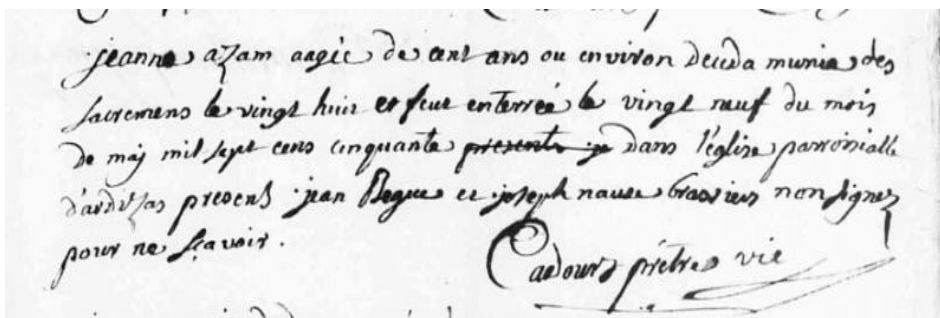 jeanne azam aagée de cent ans ou environ deceda munie des
sacremens le vingt huit et feut enterrée le vingt neuf du mois
de maj mil sept cens cinquante presents je dans l'église parroissialle
d'ardizas presens jean Begue et joseph nause brassiers non signez
pour ne sçavoir.
Cadours prêtre vic